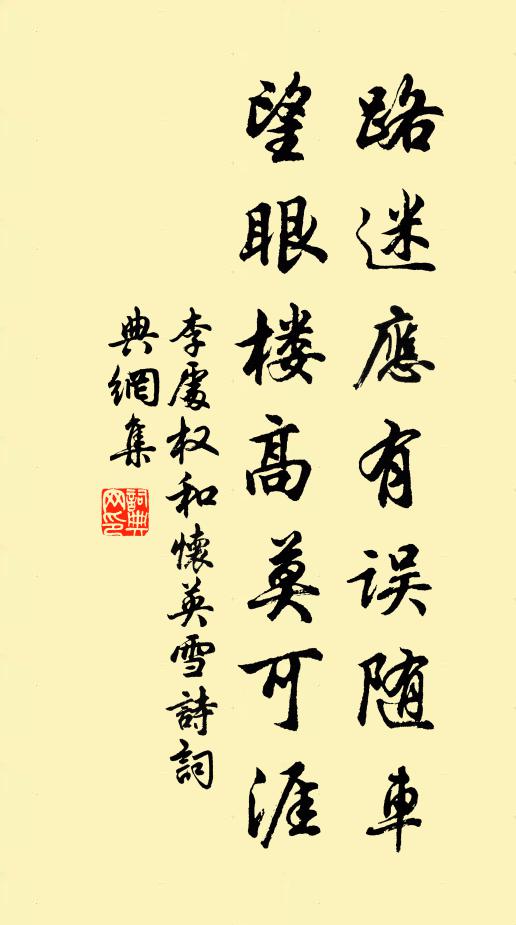 路迷應有误随車
望眼楼高莫可涯
李處权和懷英雪詩詞
典網集
詞典
网印